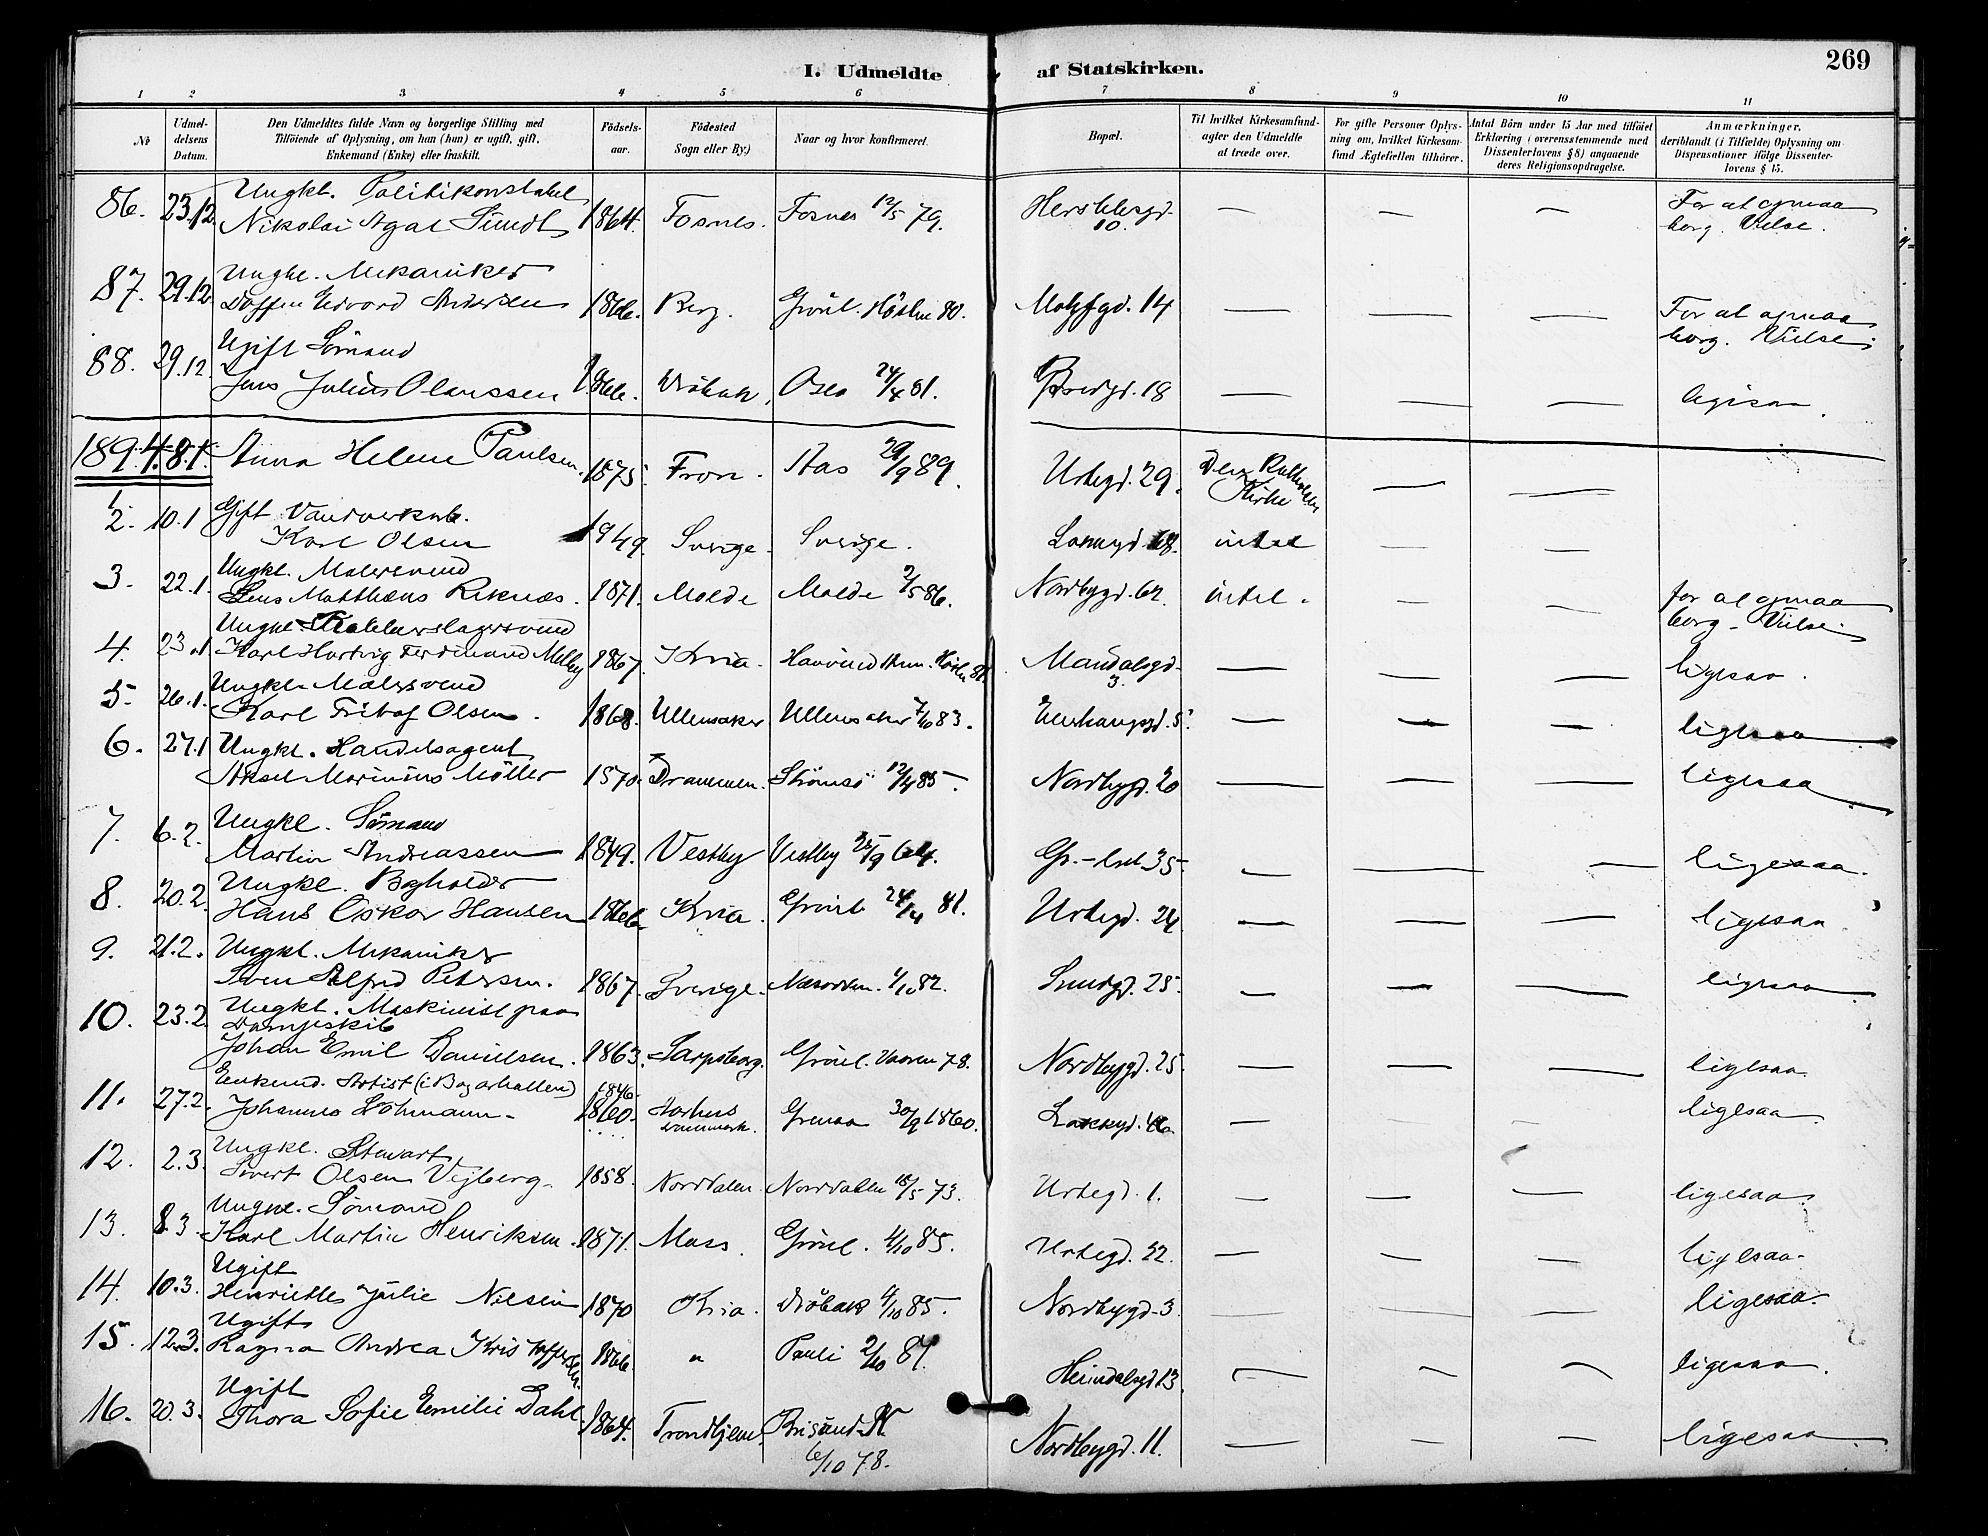 I. Udmeldte af Statskirken. 269
1 2 3 4 5 6 7 8 9 10 11
No
Udmeldelsens Datum.
Den Udmeldtes fulde Navn og borgerlige Stilling med
Tilføiende af Oplysning, om han (hun) er ugift, gift,
Enkemand (Enke) eller fraskilt.
Fødselsaar.
Fødested
Sogn eller By.)
Naar og hvor konfirmeret.
Bopæl.
Til hvilket Kirkesamfund
agter den Udmeldte
at træde over.
For gifte Personer Oplysning
om, hvilket Kirkesamfund
Ægtefællen tilhører.
Antal Børn under 15 Aar med tilføiet
Erklæring (overensstemmende med
Dissenterlovens § 8) angaaende
deres Religionsopdragelse.
Anmærkninger,
deriblandt (i Tilfælde) Oplysning om
Dispensationer ifølge Dissenterlovens § 15.
86. 23.12. Ungkl. Politikonstabel
Nikolai Agat Sundt 1864. Fosnes. Fosnes 12/5 79. 10. — — — For at opnaa
borg. Vielse.
87. 29.12. Ungkl. Mekaniker
Edvard Andersen 1866. Berg. Grønl. Høsten 80. 14 — — — For at opnaa
borg. Vielse
88. 29.12 Ugift Sømand
Jens Julius Olaussen 1866. Drøbak, Oslo 24/4 81. Bredgd. 18 — — — ligesaa.
1894. 8.1. Anna Helene Paulsen. 1875. Fron. Aas 29/9 89. Urtegd. 29. Den Katholske
Kirke — —
1.
2. 10.1 Gift
Karl Olsen 1949. Sverige. Sverige. 18. intet — —
3. 22.1. Ungkl. Malersvend
Jens Matthæus Reknæs. 1871. Molde Molde 2/5 86. Nordbygd. 62. intet. — — for at opnaa
borg. Vielse
4. 23.1 Ungkl.
Karl Hartvig Ferdinand Melby 1867. Kria. Mandalsgd.
3. — — — ligesaa.
5 26.1. Ungkl. Malersvend
Karl Fritof Olsen. 1868. Ullensaker Ullensaker 7/10 83. Enerhaugsgd. 5. — — — ligesaa
6. 27.1 Ungkl. Handelsagent
Aksel Marinius Møller 1870. Drammen. Strømsø 12/4 85. Nordbygd. 20 — — — ligesaa
7. 6.2. Ungkl. Sømand
Martin Andreassen 1849. Vestby Vestby 25/9 64. 35. — — — ligesaa.
8. 20.2. Ungkl. Bogholder
Hans Oskar Hansen 1866. Kria. Grønl. 24/4 81. Urtegd. 24 — — — ligesaa
9. 21.2. Ungkl. Mekaniker
Sven Alfred Petersen. 1867. Sverige. Næsodden. 1/10 82. Smedgd. 25. — — — ligesaa
10. 23.2. Ungkl. Maskinist paa
Dampskib
Johan Emil Danielsen. 1863. Sarpsborg. Grønl. Vaaren 78. Nordbygd. 25. — — — ligesaa.
11. 27.2. Enkemd. Artist (i Bazarhallen)
Johannes Lohmann. 1846.
1860. Aarhus
Danmark. Grenaa 30/9 1860. Lakkegd. 46. — — ligesaa
12. 2.3. Ungkl. Stewart
Sivert Olsen Vejberg. 1858. Norddalen. Norddalen 18/5 73. Urtegd. 1. — — — ligesaa
13. 8.3. Ungkl. Sømand
Karl Martin Henriksen. 1871. Moss. Grønl. 4/10 85. Urtegd. 22. — — — ligesaa.
14. 10.3. Ugift
Henriette Julie Nilsen 1870 Kria. Drøbak 4/10 85. Nordbygd. 3. — — — ligesaa.
15. 12.3. Ugift
Ragna Andrea Kristoffersen. 1866. " Pauli 2/10 81. Heimdalsgd 13. — — — ligesaa.
16. 20.3. Ugift
Thora Sofie Emilie Dahl. 1864. Trondhjem. N
6/10 78. Nordbygd. 11. — — — ligesaa.